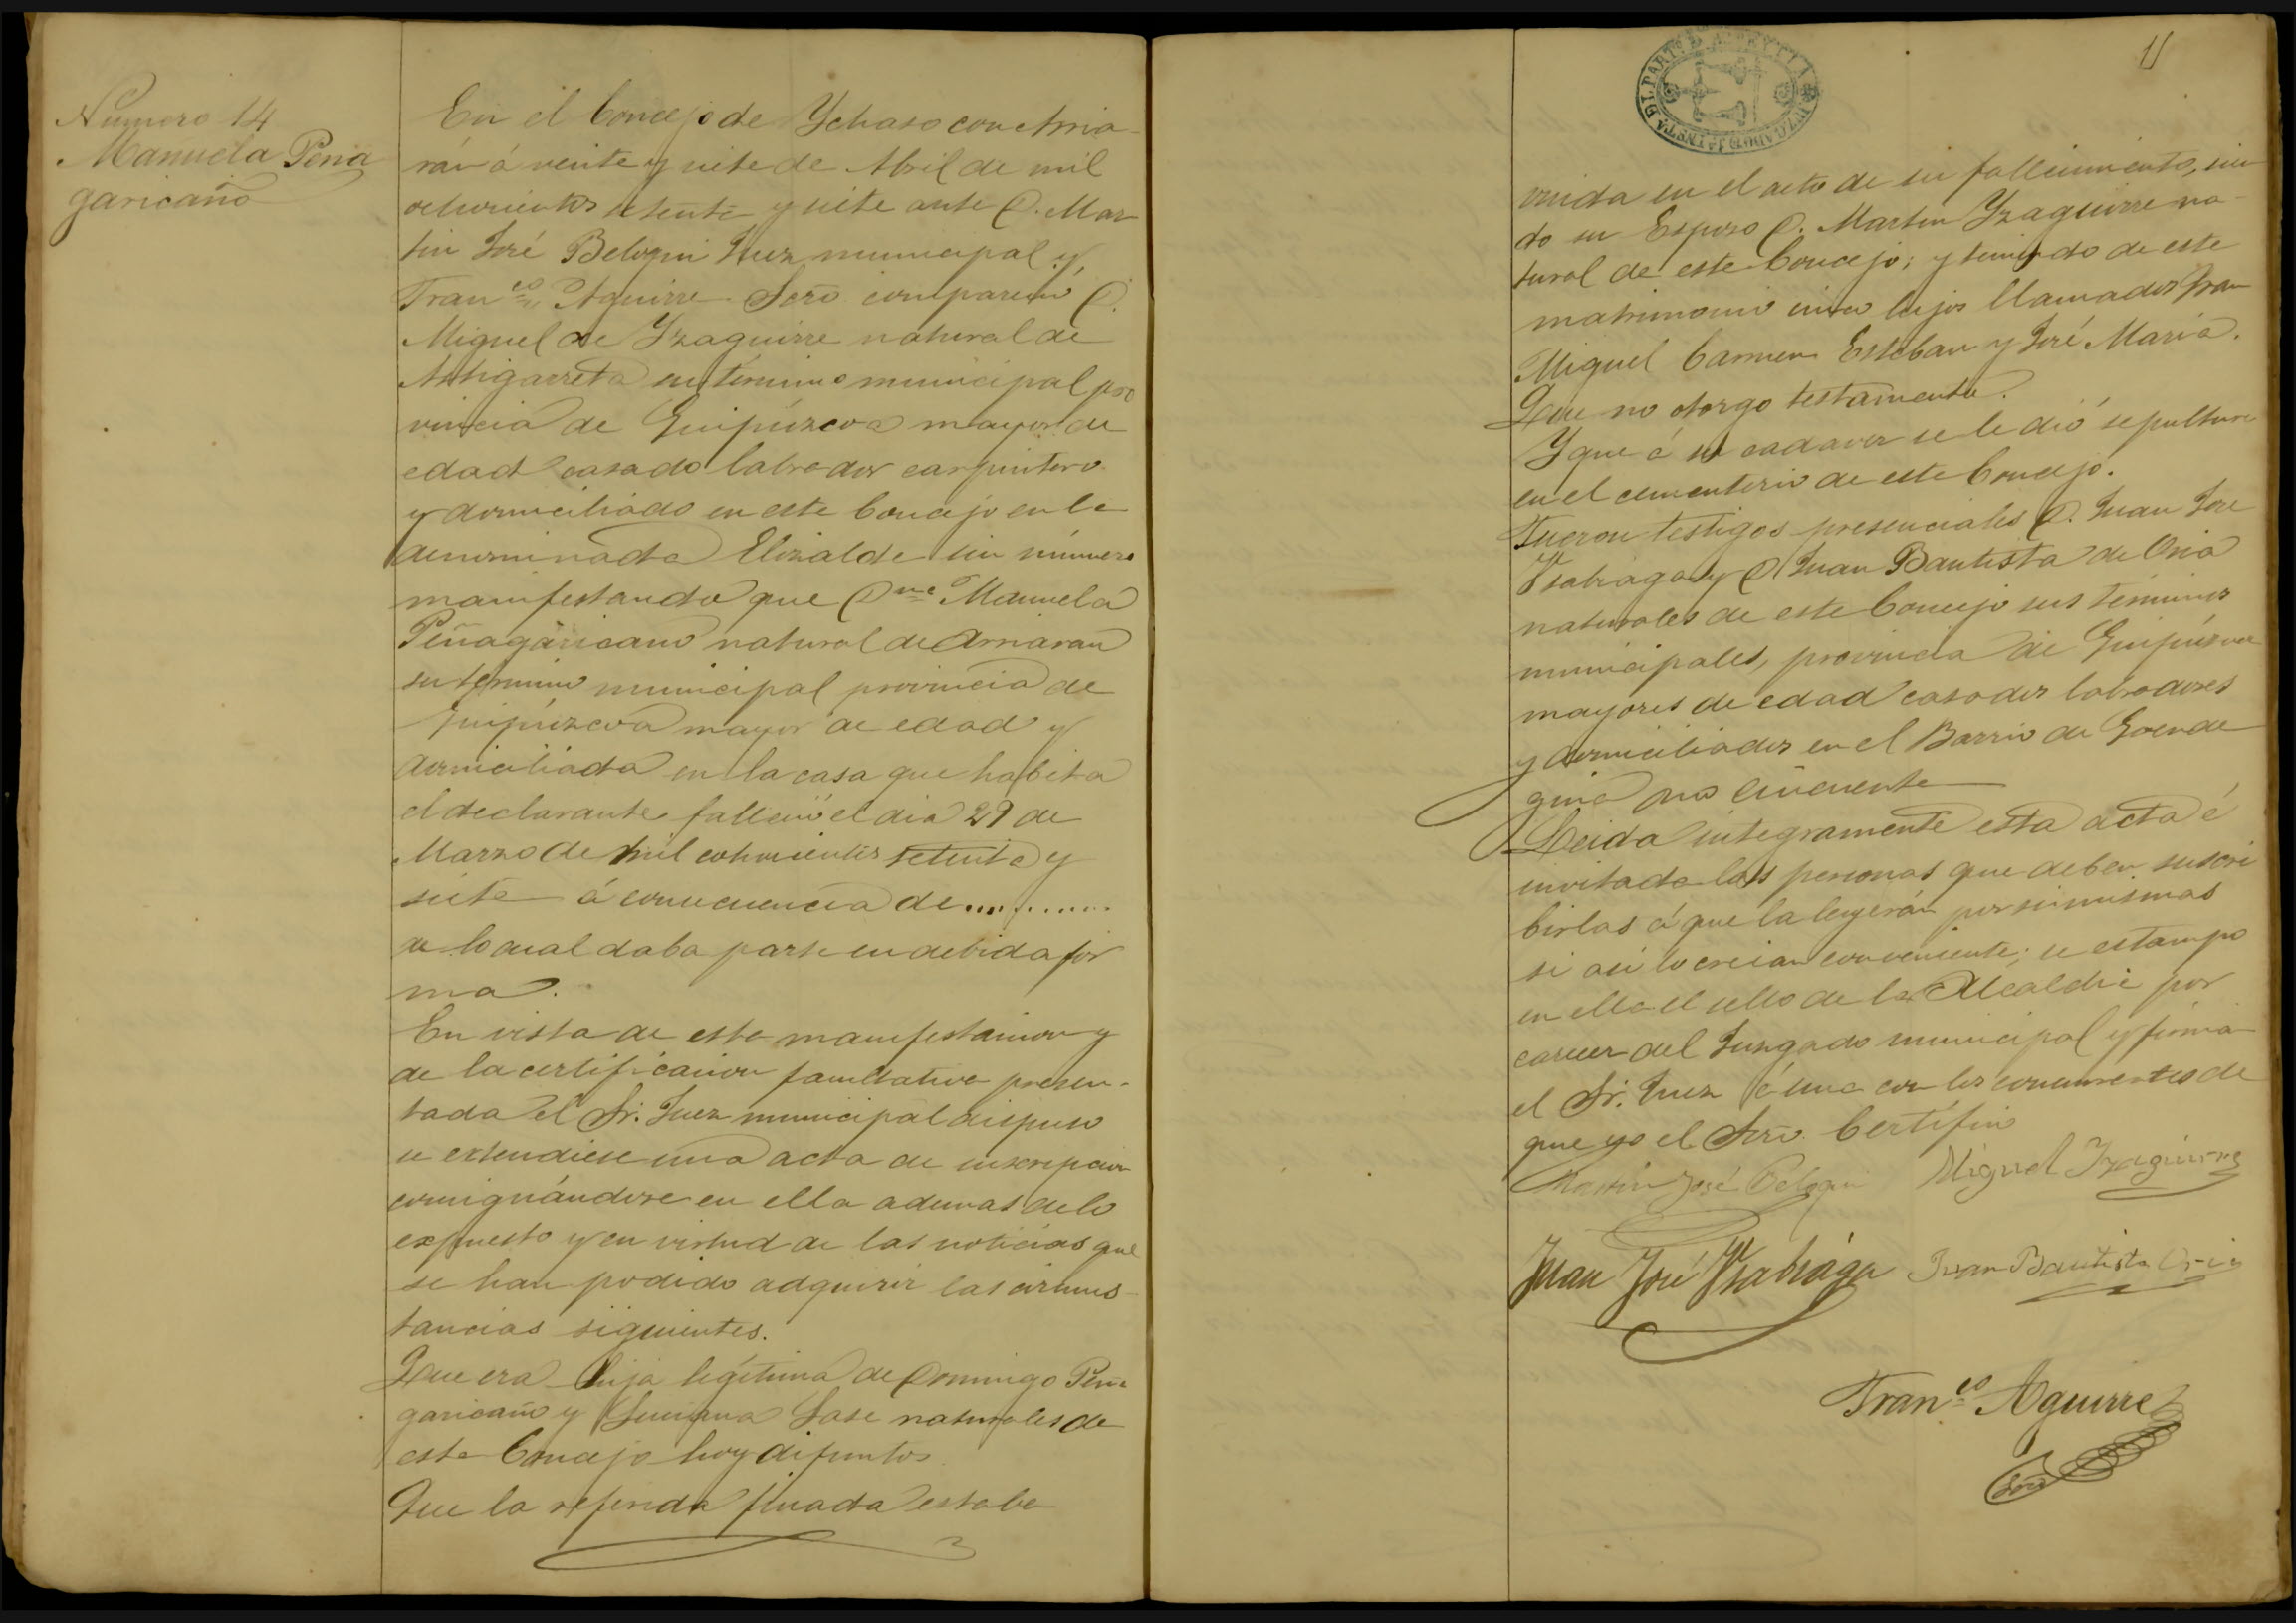 Numero 14
Manuela Pena
garicaño
En el Concejo de Ychaso con Arria-
rán á veite y siete de Abril de mil
ochocientos setenta y siete ante D. Mar
tin José Beloqui Juez municipal y,
Fran^co Aguirre Secr̄o comparecio D.
Miguel de Yzaguirre natural de
Astigarreta su termino municipal pro
vincia de Guipúzcoa mayor de
edad casado labrador carpintero
y domiciliado en este Concejo en la
denominada Elizalde sin número
manifestando que D^ña Manuela
Peñagaricano natural de Arriaran
su termino municipal provincia de
Guipúzcoa mayor de edad y
domiciliada en la casa que habita
el declarante fallecio el dia 29 de
Marzo de mil ochocientos setenta y
siete á consecuencia de...........
de lo cual daba parte en debida for
ma.
En vista de esta manifestacion y
de la certificacion facultativa presen-
tada el Sr. Juez municipal dispuso
se extendiese una acta de inscripcion
consignándose en ella ademas de lo
expuesto y en virtud de las noticias que
se han podido adquirir las circuns-
tancias siguientes.
Que era hija legítima de Domingo Peña
garicano y Luciana Sase naturales de
este Concejo hoy difuntos
Que la referida finada estaba
11
unida en el acto de su fallecimiento, sien
do su Esposo D. Martin Yzaguirre na-
tural de este Concejo; y teniendo de este
matrimonio cinco hijos llamados Juan
Miguel Carmen Esteban y José Maria.
Que no otorgo testamento.
Y que á su cadaver se le dió sepultura
en el cementerio de este Concejo.
Fueron testigos presenciales D. Juan José
Ysabiaga y D Juan Bautista de Oria
naturales de este Concejo sus terminos
municipales, provincia de Guipúzcoa
mayores de edad casados labradores
y domiciliados en el Barrio de
Leida integramente esta acta é
invitada las personas que deben suscri
birlas á que la leyerán por si mismas
si asi lo creian conveniente; se estampo
en ella el sello de la Alcaldia por
carecer del Juzgado municipal y firma
el Sr. Juez á una con los concurrentes de
que yo el Secr̄o. Certifico
Martin José Beloqui Miguel Yzaguirre
Juan José Ysabiaga Juan Bautista Oria
Fran^co Aguirre
Secr̄o